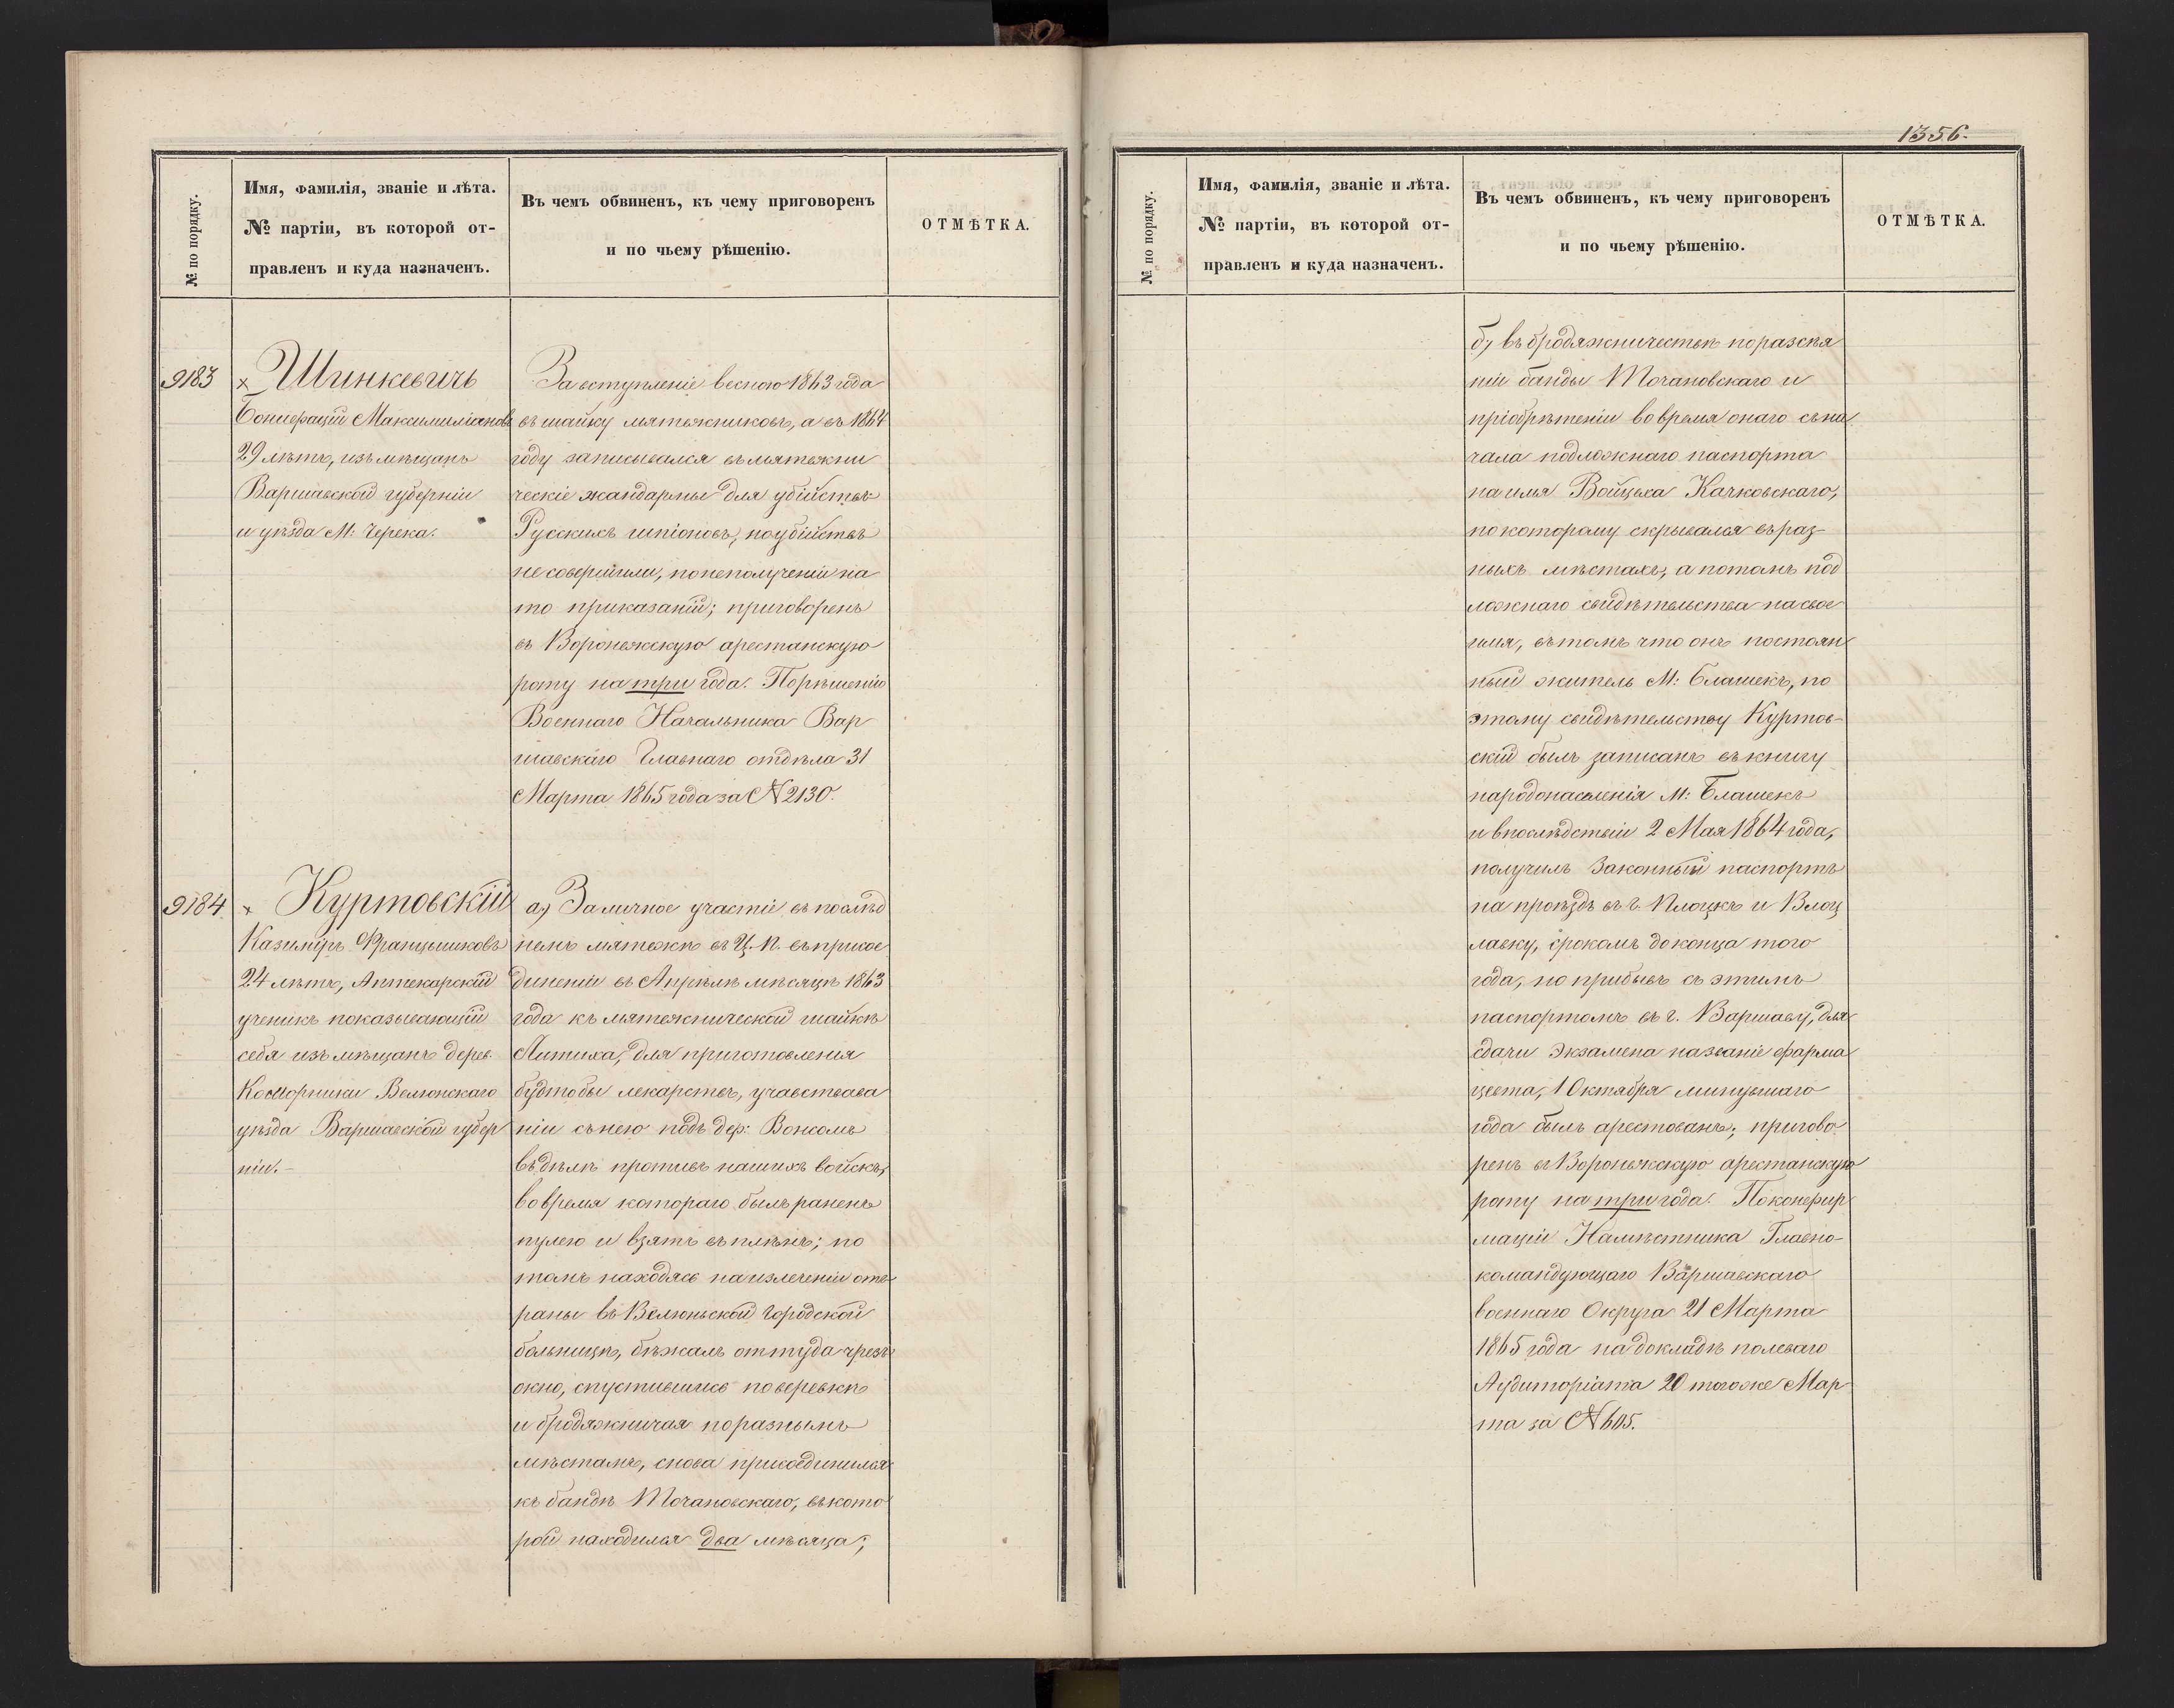 № по порядку.
Имя, фамилія, званіе и лѣта.
№ партіи, въ которой от-
правленъ и куда назначенъ.
Въ чемъ обвиненъ, къ чему приговоренъ
и по чьему рѣшенію.
ОТМѢТКА.
9183
× Шинкевичъ
Бонифацій Максимиліановъ
29 лѣтъ, изъ мѣщанъ
Варшавской губерніи
и уѣзда М: Черска.
За вступленіе весною 1863 года
въ шайку мятежниковъ, а въ 1864
году записывался въ мятежни
ческіе жандармы для убійствъ
Русскихъ шпіоновъ, но убійствъ
не совершили, по неполученіи на
то приказаній; приговоренъ
въ Воронежскую арестанскую
роту на три года. По рѣшенію
Военнаго Начальника Вар
шавскаго Главнаго отдѣла 31
Марта 1865 года за № 2130.
9184
× Куртовскій
Казиміръ Францышковъ
24 лѣтъ, Аптекарскій
ученикъ показывающій
себя изъ мѣщанъ дерев.
Велюнскаго
уѣзда Варшавской губер
ніи.-
а) За личное участіе въ послѣд
немъ мятежѣ въ Ц. П. въ присое
диненіи въ Апрѣлѣ мѣсяцѣ 1863
года къ мятежнической шайкѣ
Лютиха, для приготовленія
будтобы лекарствъ, учавствова
ніи съ нею подъ дер:
въ дѣлѣ противъ нашихъ войскъ,
во время котораго былъ раненъ
пулею и взятъ въ плѣнъ; по
томъ находясь на излеченіи отъ
раны въ Велюньской городской
больницѣ, бѣжалъ оттуда чрезъ
окно, спустившись по веревкѣ
и бродяжничая по разнымъ
мѣстамъ, снова присоединился
къ бандѣ Точановскаго, въ кото
рой находился два мѣсяца;
1356.
№ по порядку.
Имя, фамилія, званіе и лѣта.
№ партіи, въ которой от-
правленъ и куда назначенъ.
Въ чемъ обвиненъ, къ чему приговоренъ
и по чьему рѣшенію.
ОТМѢТКА.
б) въ бродяжничествѣ по разсѣя
ніи банды Точановскаго и
пріобрѣтеніи во время онаго съ на
чала подложнаго паспорта
на имя Войцѣха Качковскаго,
по которому скрывался въ раз-
ныхъ мѣстахъ, а потомъ под
ложнаго свидѣтельства на свое
имя, въ томъ что онъ постоян
ный житель М: Блашекъ, по
этому свидѣтельству Куртов-
скій былъ записанъ въ книгу
народонаселенія М: Блашекъ
и впослѣдствіи 2 Мая 1864 года,
получилъ законный паспортъ
на проѣздъ въ г. Плоцкъ и Влоц
лавку, срокомъ до конца того
года, но прибывъ съ этимъ
паспортомъ въ г. Варшаву, для
сдачи экзамена на званіе фарма
цевта, 1 Октября минувшаго
года былъ арестованъ; пригово
ренъ въ Воронежскую арестанскую
роту на три года. По конфир
маціи Намѣстника Главно-
командующаго Варшавскаго
военнаго Округа 21 Марта
1865 года на докладѣ полеваго
Аудиторіата 20 того же Мар
та за № 605.